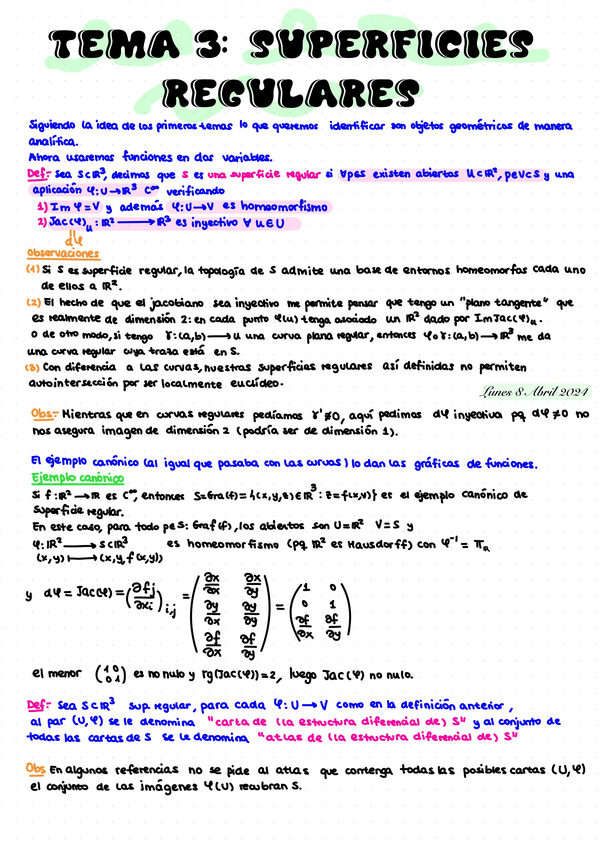 TEMA 3: SUPERFICIES
REGULARES
Siguiendo la idea de los primeros temas lo que queremos identificar son objetos geométricos de manera
analítica.
Ahora usaremos funciones en dos variables.
Def:- Sea S⊂ℝ³, decimos que S es una superficie regular si ∀p∈S existen abiertos U⊂ℝ², p∈V⊂S y una
aplicación φ:U→ℝ³ C^∞ verificando
1) Im φ = V y además φ:U→V es homeomorfismo
2) Jac(φ)_u : ℝ² → ℝ³ es inyectivo ∀ u∈U
dφ
Observaciones
(1) Si S es superficie regular, la topología de S admite una base de entornos homeomorfas cada uno
de ellos a ℝ².
(2) El hecho de que el jacobiano sea inyectivo me permite pensar que tengo un "plano tangente" que
es realmente de dimensión 2: en cada punto φ(u) tenga asociado un ℝ² dado por Im Jac(φ)_u.
O de otro modo, si tengo γ:(a,b)→U una curva plana regular, entonces φ∘γ:(a,b)→ℝ³ me da
una curva regular cuya traza está en S.
(3) Con diferencia a las curvas, nuestras superficies regulares así definidas no permiten
autointersección por ser localmente euclídeo.
Lunes 8 Abril 2024
Obs:- Mientras que en curvas regulares pedíamos γ'≠0, aquí pedimos dφ inyectiva pq dφ≠0 no
nos asegura imagen de dimensión 2 (podría ser de dimensión 1).
El ejemplo canónico (al igual que pasaba con las curvas) lo dan las gráficas de funciones.
Ejemplo canónico
Si f:ℝ²→ℝ es C^∞, entonces S=Gra(f)={(x,y,z)∈ℝ³: z=f(x,y)} es el ejemplo canónico de
superficie regular.
En este caso, para todo p∈S: Graf(f), los abiertos son U=ℝ² V=S y
φ:ℝ² → S⊂ℝ³ es homeomorfismo (pq ℝ² es Hausdorff) con φ⁻¹ = π_R
(x,y) ↦ (x,y,f(x,y))
y dφ = Jac(φ) = (∂fj/∂xi)_{i,j} = (∂x/∂x ∂x/∂y ; ∂y/∂x ∂y/∂y ; ∂f/∂x ∂f/∂y) = (1 0 ; 0 1 ; ∂f/∂x ∂f/∂y)
el menor (1 0 ; 0 1) es no nulo y rg(Jac(φ))=2, luego Jac(φ) no nulo.
Def:- Sea S⊂ℝ³ sup. regular, para cada φ:U→V como en la definición anterior,
al par (U,φ) se le denomina "carta de (la estructura diferencial de) S" y al conjunto de
todas las cartas de S se le denomina "atlas de (la estructura diferencial de) S"
Obs En algunos referencias no se pide al atlas que contenga todas las posibles cartas (U,φ)
el conjunto de las imágenes φ(U) recubran S.